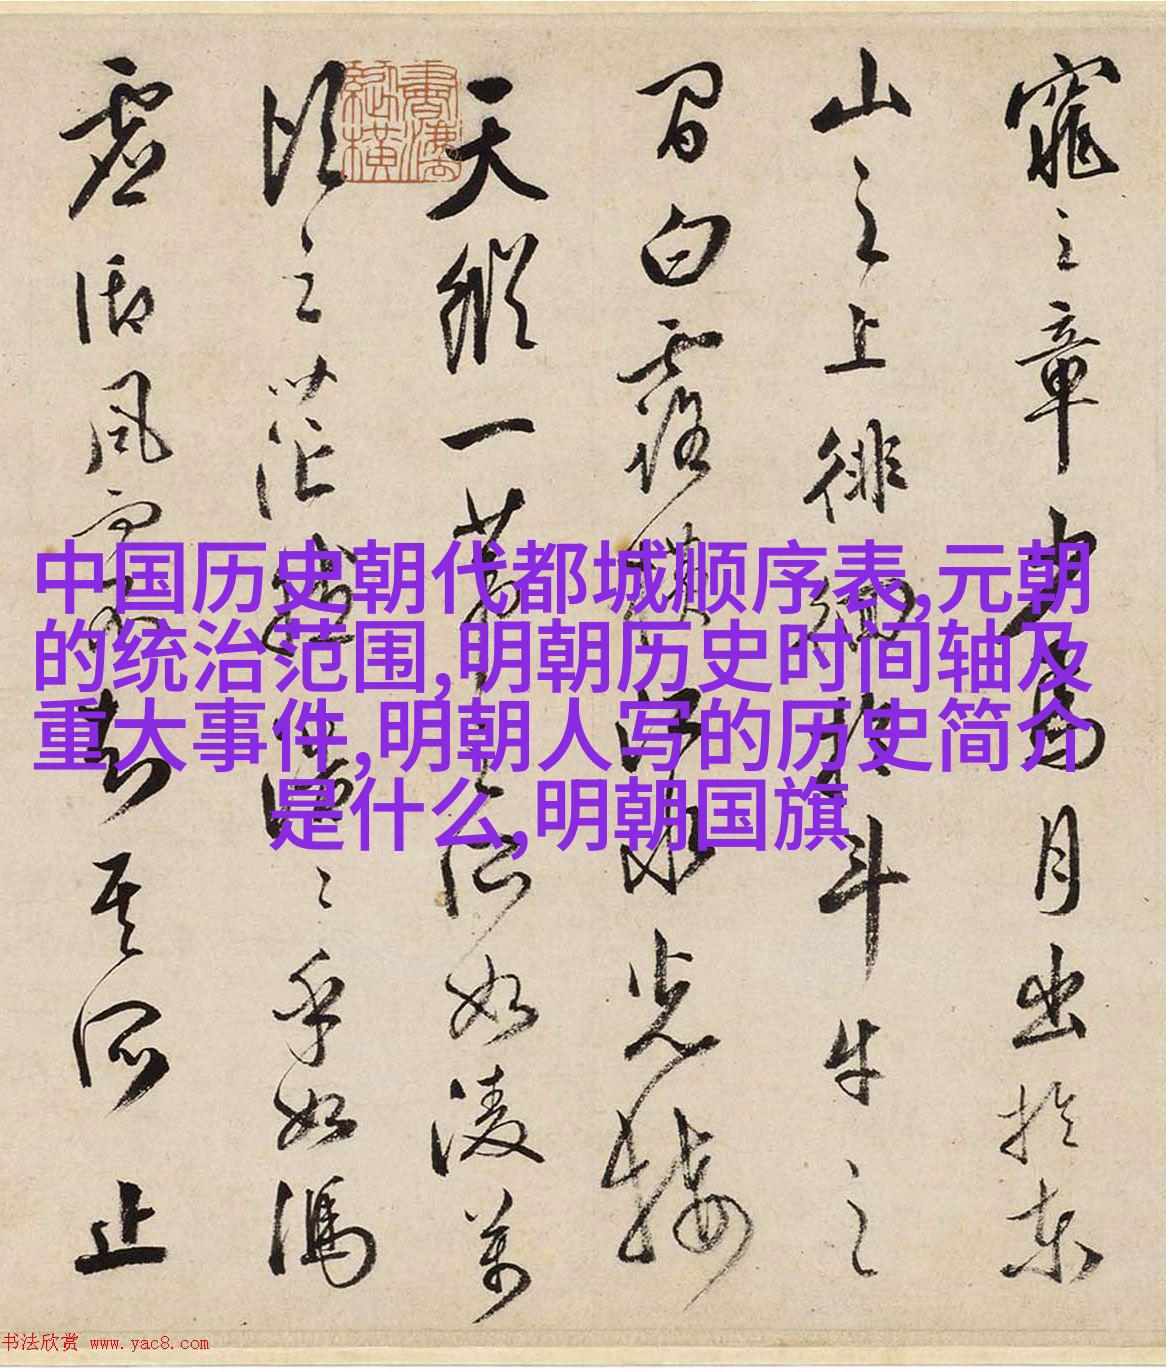 窕之章少焉月出於东
山之上徘徊於斗牛之
间白露横江水光接
天纵一苇之所如凌万
顷之茫然浩浩乎如冯
虚御风而不知其所止
書溪縱橫
中国历史朝代都城顺序表,元朝
的统治范围,明朝历史时间轴及
重大事件,明朝人写的历史简介
是什么,明朝国旗
书法欣赏 www.yac8.com